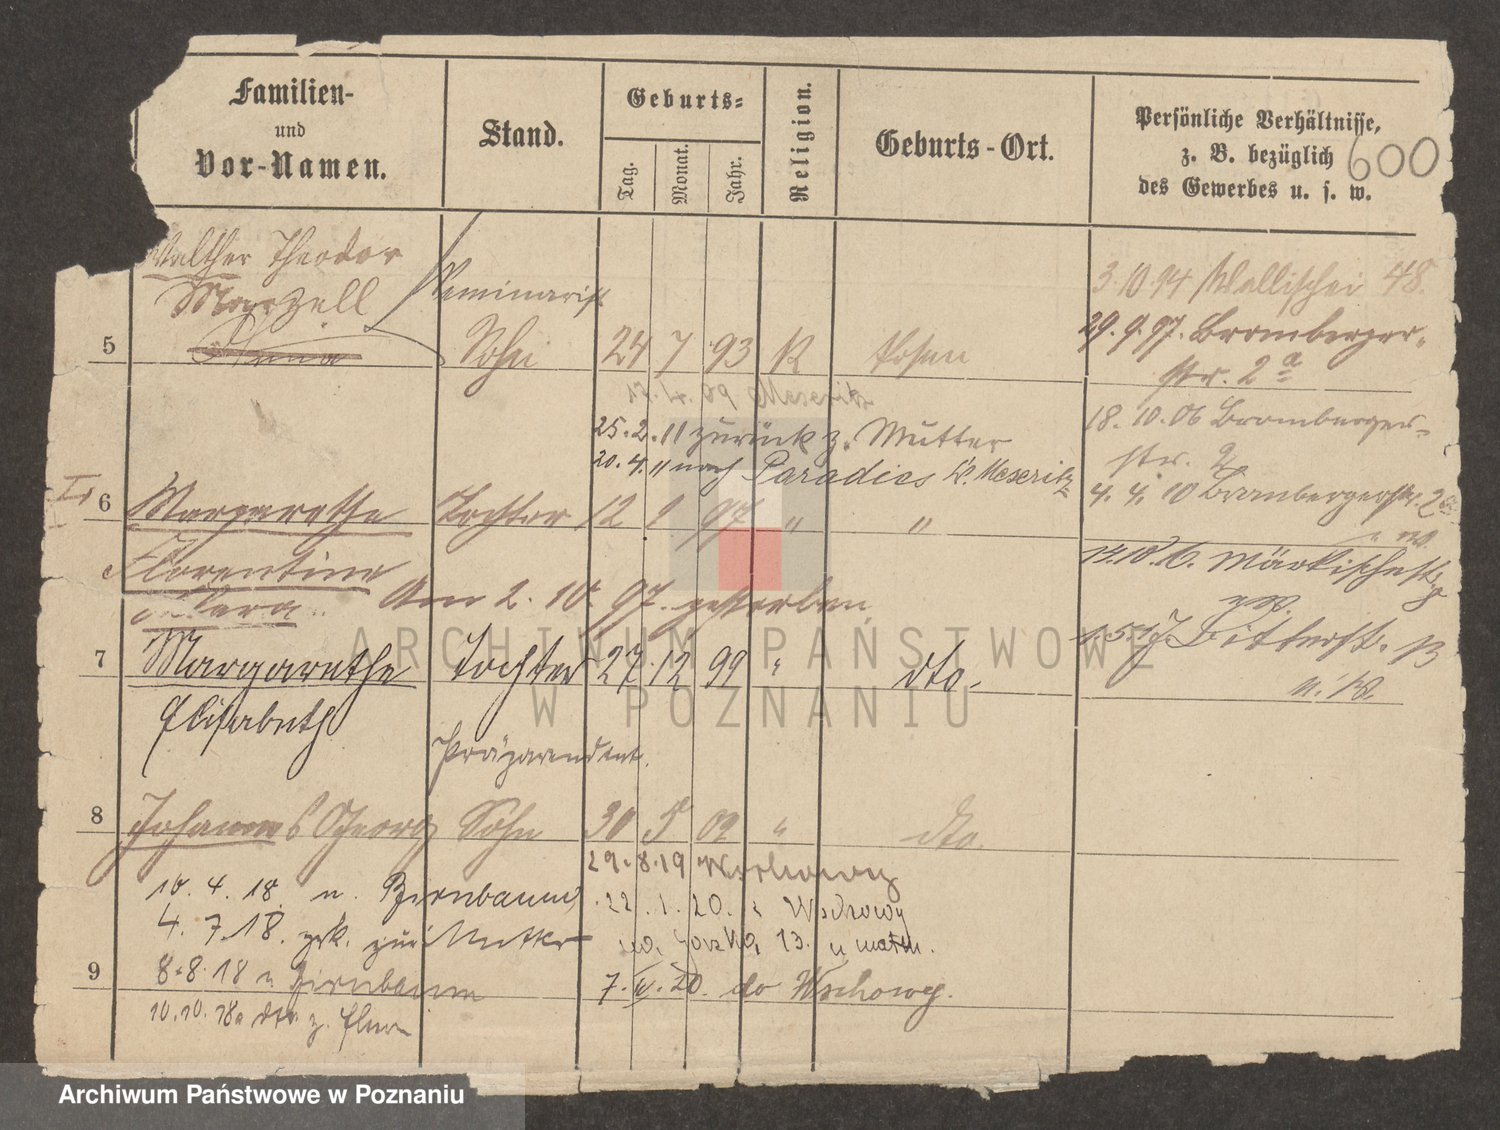 Familien-
und
Vor-Namen.
Stand.
Geburts-
Tag.
Monat.
Jahr.
Religion.
Geburts-Ort.
Persönliche Verhältnisse,
z. B. bezüglich
des Gewerbes u. s. w.
600
Walther Theodor
Marzell
Seminarist
5 Sohn 24 7 93 K Posen
17.4.09 Meseritz
25.2.11 zurück z. Mutter
20.4.11 nach Paradies b. Meseritz
6 Margarethe Tochter 12 1 97 " "
Florentine
Clara
Am 2.10.97. gestorben
7 Margarethe Tochter 27.12 99 " dto.
Elisabeth
Präparendent.
8 Johannes Georg Sohn 30 5 02 " dto.
29.8.19 Wschowy
10.4.18. n. Birnbaum
22.1.20. " Wschowy
4.7.18. zrk. zur Mutter
13. u
8.8.18 n Birnbaum
9
7.IV.20. do Wschowy.
10.10.18 z. Eltern
3 10 94 Wallischei 48.
29.9.97. Bromberger-
str. 2a
18.10.06 Bromberger-
str. 2
4.4.10 Brombergerstr. 2a
14.10.16. Märkischestr
1.5.17. Bitterstr.
ARCHIWUM PAŃSTWOWE
W POZNANIU
Archiwum Państwowe w Poznaniu